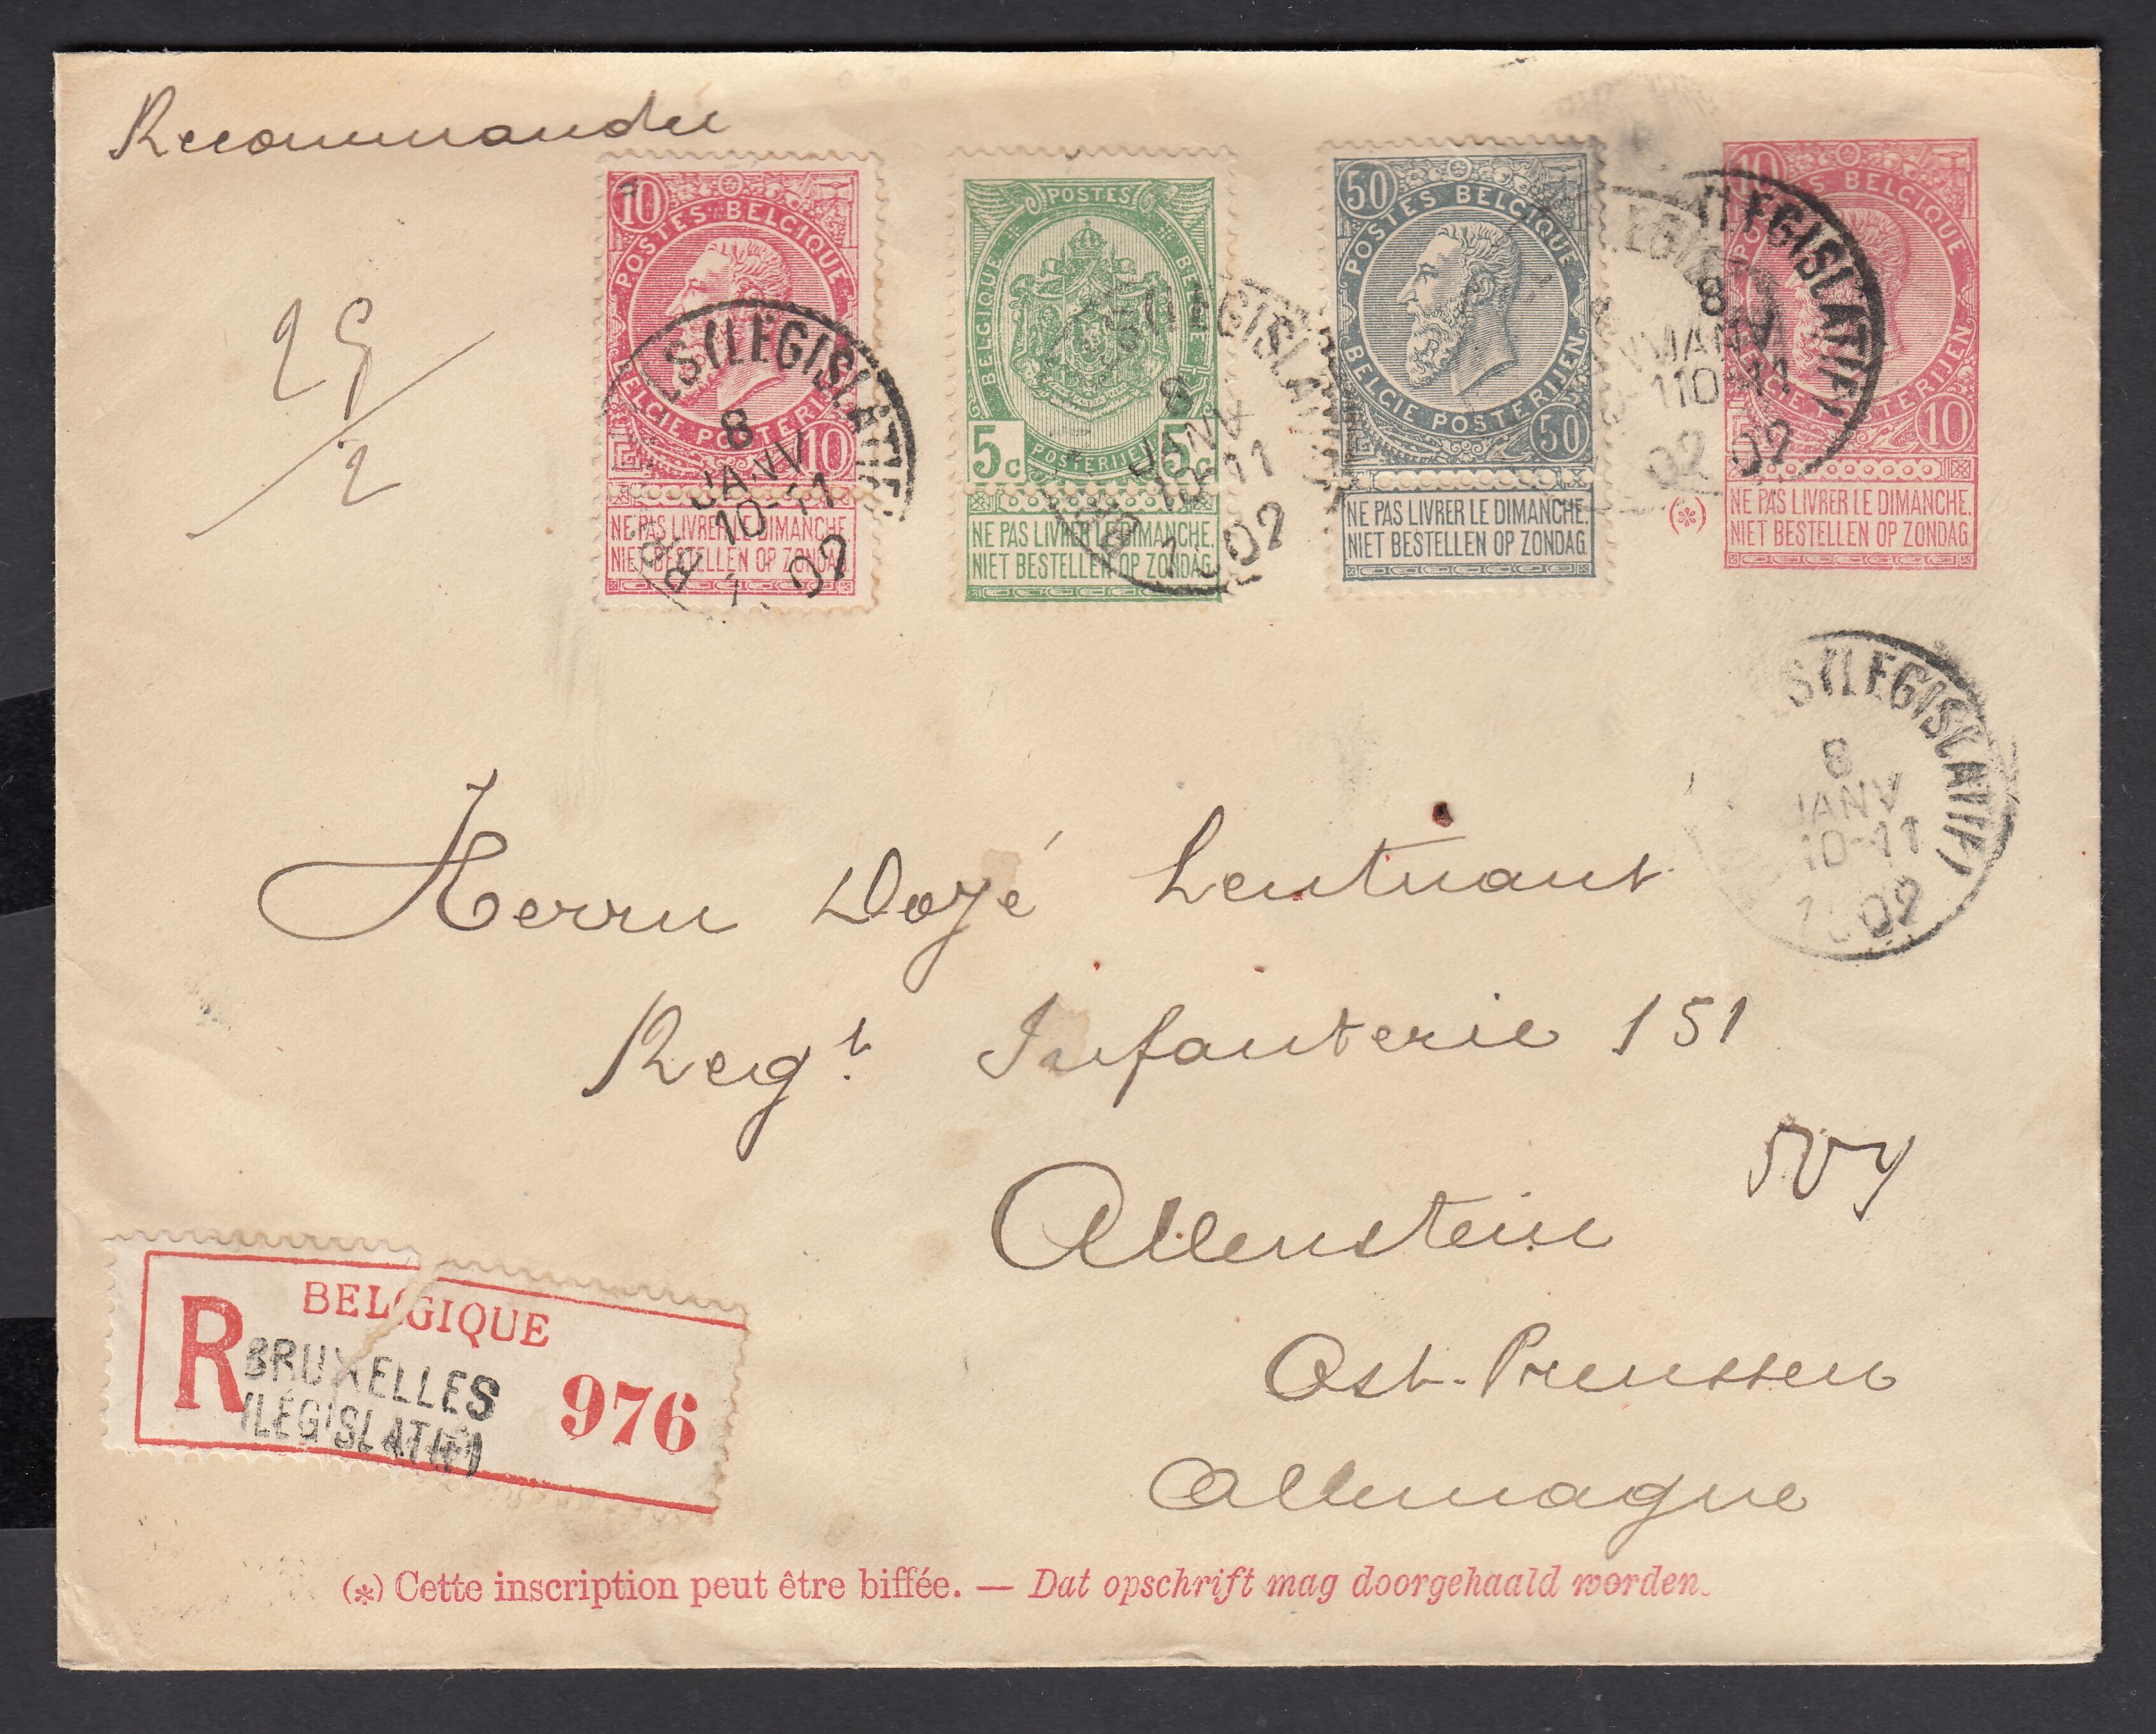 Recommandée
29
2
10
POSTES BELGIQUE
BELGIE POSTERIJEN
10
NE PAS LIVRER LE DIMANCHE.
NIET BESTELLEN OP ZONDAG.
POSTES
BELGIQUE
BELGIË
POSTERIJEN
5c 5c
NE PAS LIVRER LE DIMANCHE.
NIET BESTELLEN OP ZONDAG.
50
POSTES BELGIQUE
BELGIE POSTERIJEN
50
NE PAS LIVRER LE DIMANCHE.
NIET BESTELLEN OP ZONDAG.
10
POSTES BELGIQUE
BELGIE POSTERIJEN
10
(*)
NE PAS LIVRER LE DIMANCHE.
NIET BESTELLEN OP ZONDAG.
(LÉGISLATIF)
8
JANV
10-11
02
(LEGISLATIF)
8
JANV
10-11
1902
(LEGISLATIF)
8
JANV
02
S (LEGISLATIF)
8
JANV
10-11
1902
Herrn Leutnant
Regt. Infanterie 151
Allenstein
Ost-Preussen
Allemagne
BELGIQUE
R
BRUXELLES
(LÉGISLATIF)
976
(*) Cette inscription peut être biffée. — Dat opschrift mag doorgehaald worden.